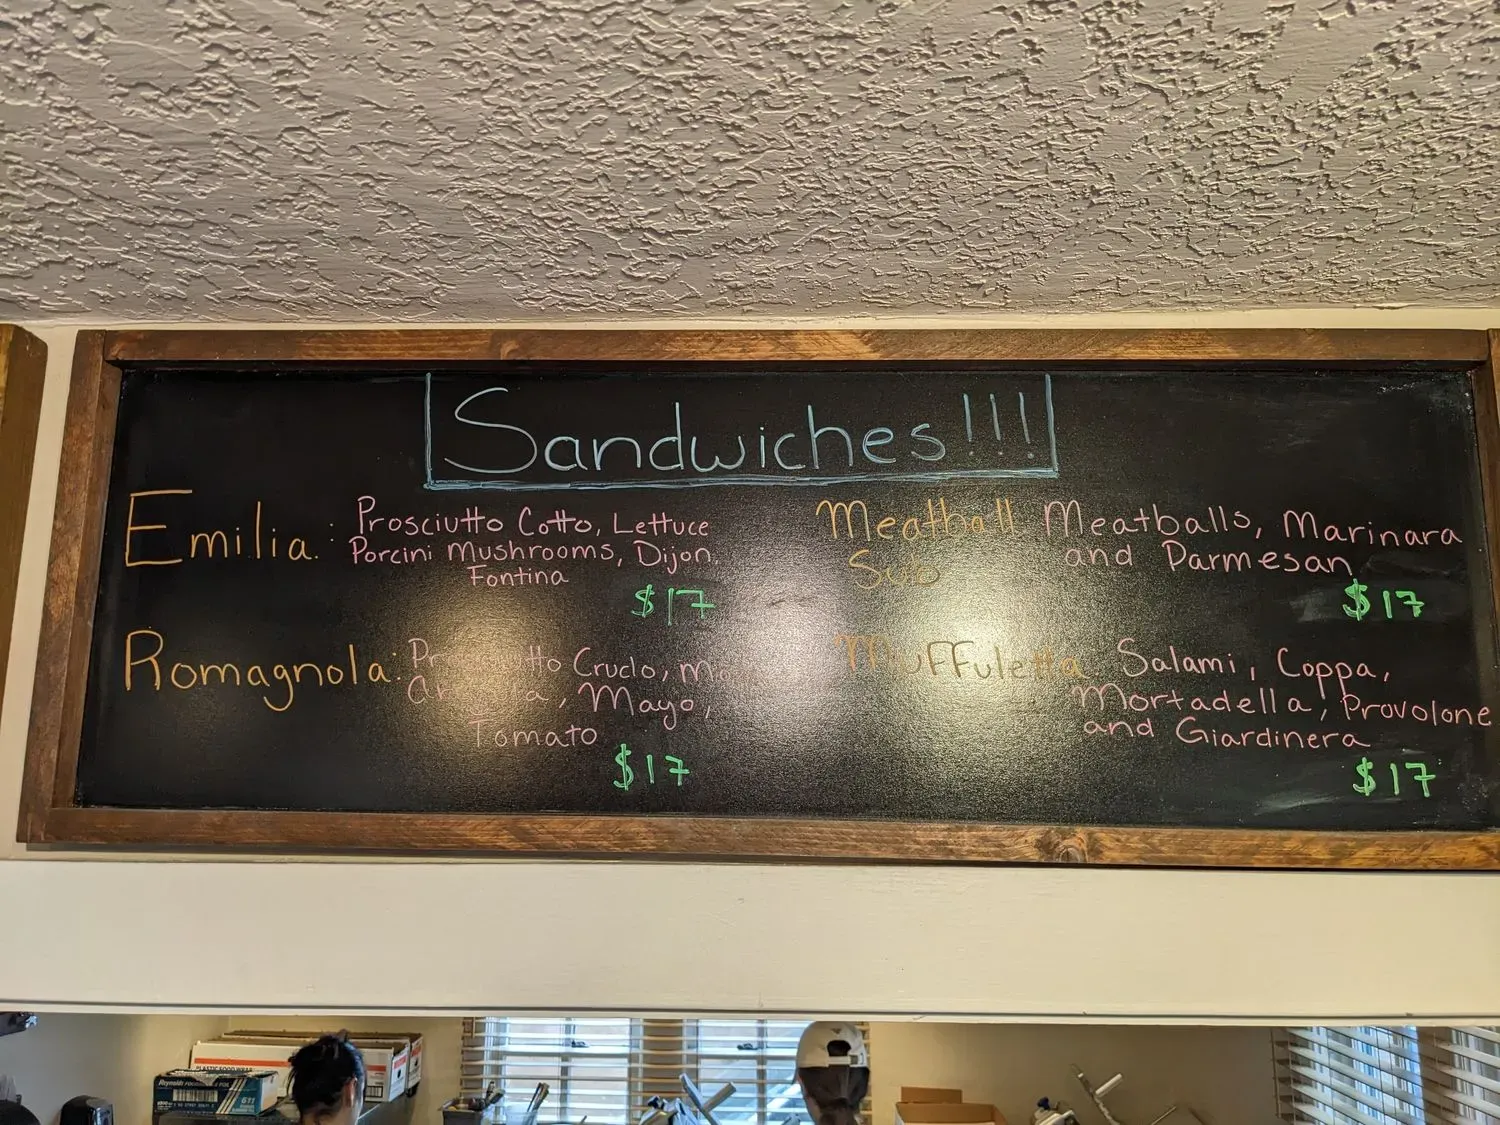 Sandwiches!!!
Emilia: Prosciutto Cotto, Lettuce
Porcini Mushrooms, Dijon,
Fontina
$17
Romagnola: Prosciutto Crudo,
Mayo,
Tomato
$17
Meatball Sub
Meatballs, Marinara
and Parmesan
$17
Muffuletta Salami, Coppa,
Mortadella, Provolone
and Giardinera
$17
Reynolds
611